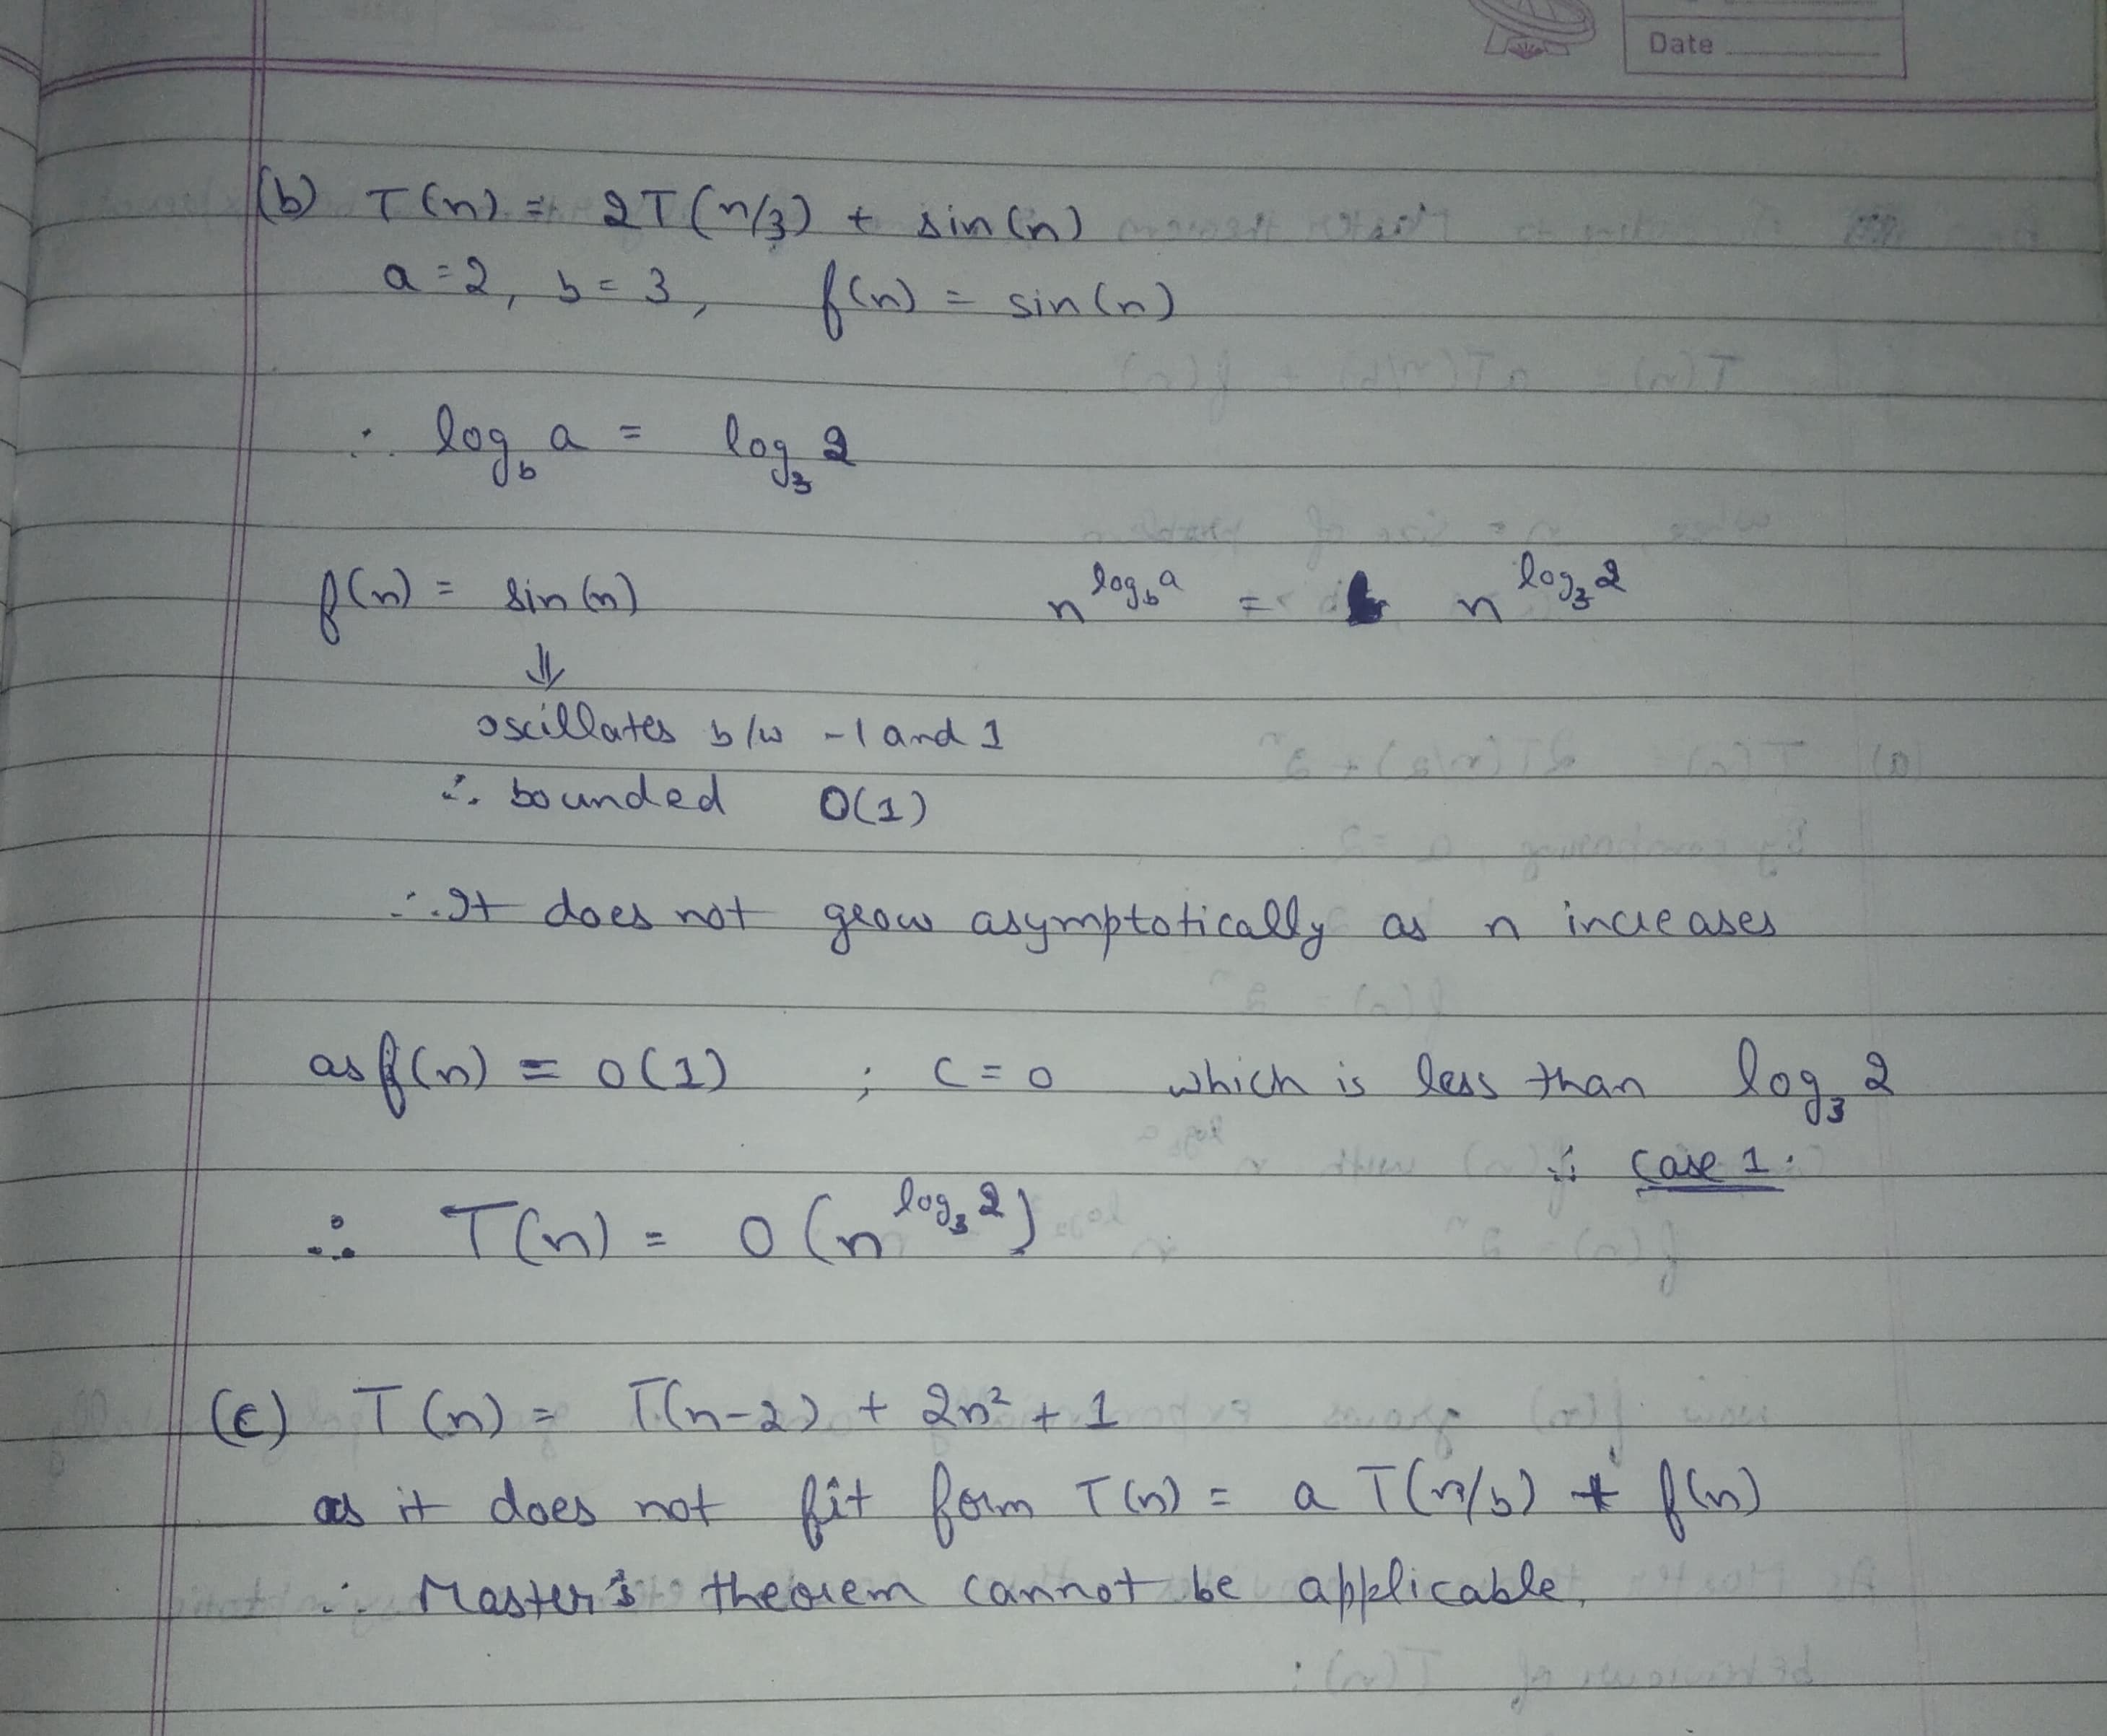 Date
(b) T(n) = 2T(n/3) + sin(n)
a = 2, b = 3, f(n) = sin(n)
∴ log_b a = log_3 2
f(n) = sin(n) n^(log_b a) = n^(log_3 2)
⇓
oscillates b/w -1 and 1
∴ bounded O(1)
∴ It does not grow asymptotically as n increases
as f(n) = O(1) ; c = 0 which is less than log_3 2
∴ Case 1.
∴ T(n) = O(n^(log_3 2))
(c) T(n) = T(n-2) + 2n² + 1
as it does not fit form T(n) = a T(n/b) + f(n)
∴ Master's theorem cannot be applicable.